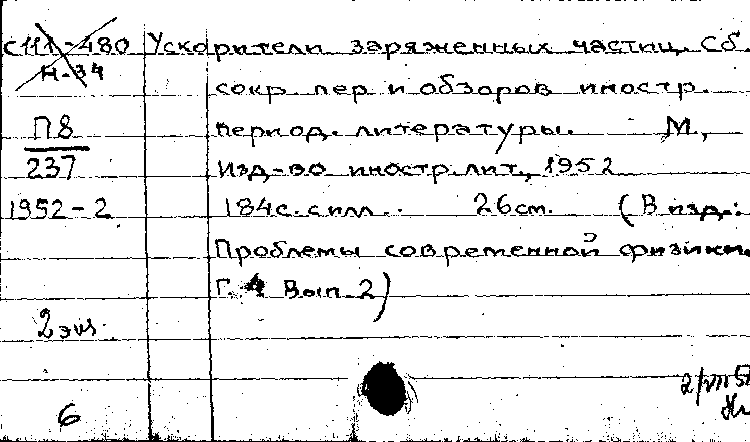 С111-480 Ускорители заряженных частиц. Сб.
Н-34
сокр. пер и обзоров иностр.
П8 период. литературы. М.,
237 Изд-во иностр. лит., 1952
1952-2 184с. с илл.. 26см. (В изд.:
Проблемы современной физики.
Г. 4 Вып. 2)
2 экз.
6